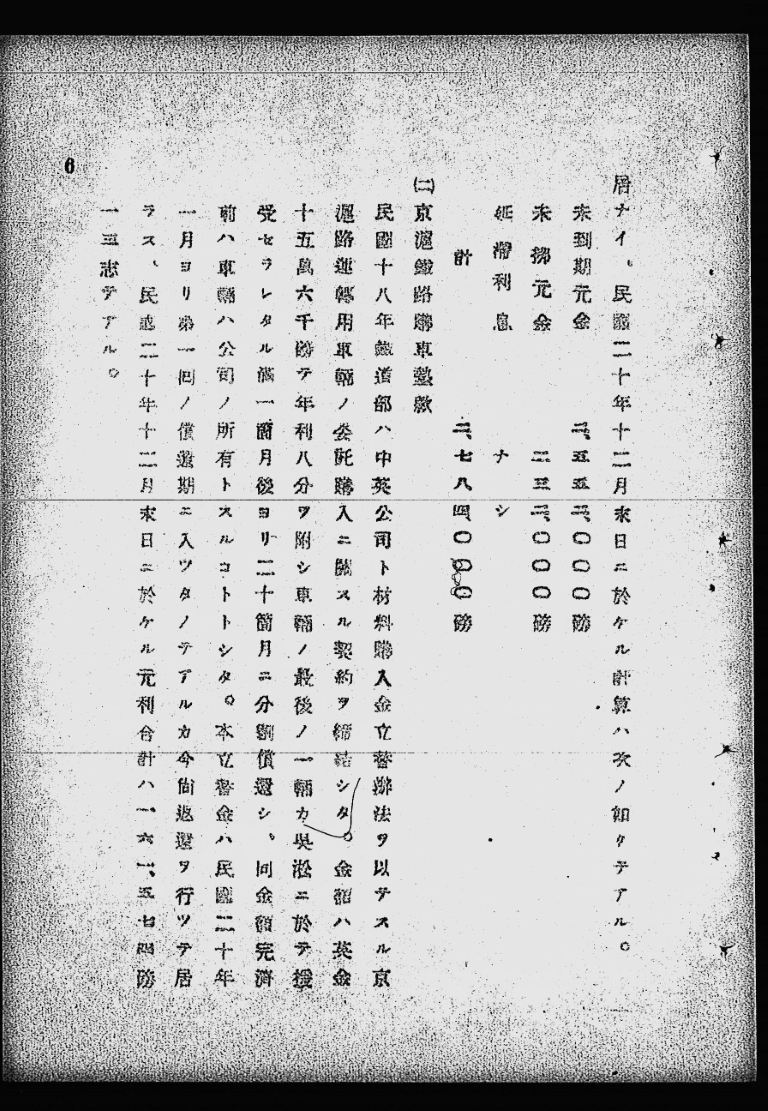 居ナイ。民國二十年十二月末日ニ於ケル計算ハ次ノ如クテアル。
未到期元金 二、五五二、〇〇〇磅
未拂元金 二三二、〇〇〇磅
延滯利息 ナシ
計 二、七八四、〇〇〇磅
(二)京滬鐵路購車墊款
民國十八年鐵道部ハ中英公司ト材料購入金立替辦法ヲ以テスル京
滬路運轉用車輛ノ委託購入ニ關スル契約ヲ締結シタ。金額ハ英金
十五萬六千磅テ年利八分ヲ附シ車輛ノ最後ノ一輛カ吳淞ニ於テ授
受セラレタル滿一箇月後ヨリ二十箇月ニ分割償還シ、同金額完濟
前ハ車輛ハ公司ノ所有トスルコトトシタ。本立替金ハ民國二十年
一月ヨリ第一囘ノ償還期ニ入ツタノテアルカ今尙返還ヲ行ツテ居
ラス、民國二十年十二月末日ニ於ケル元利合計ハ一六一、五七四磅
一三志テアル。
6